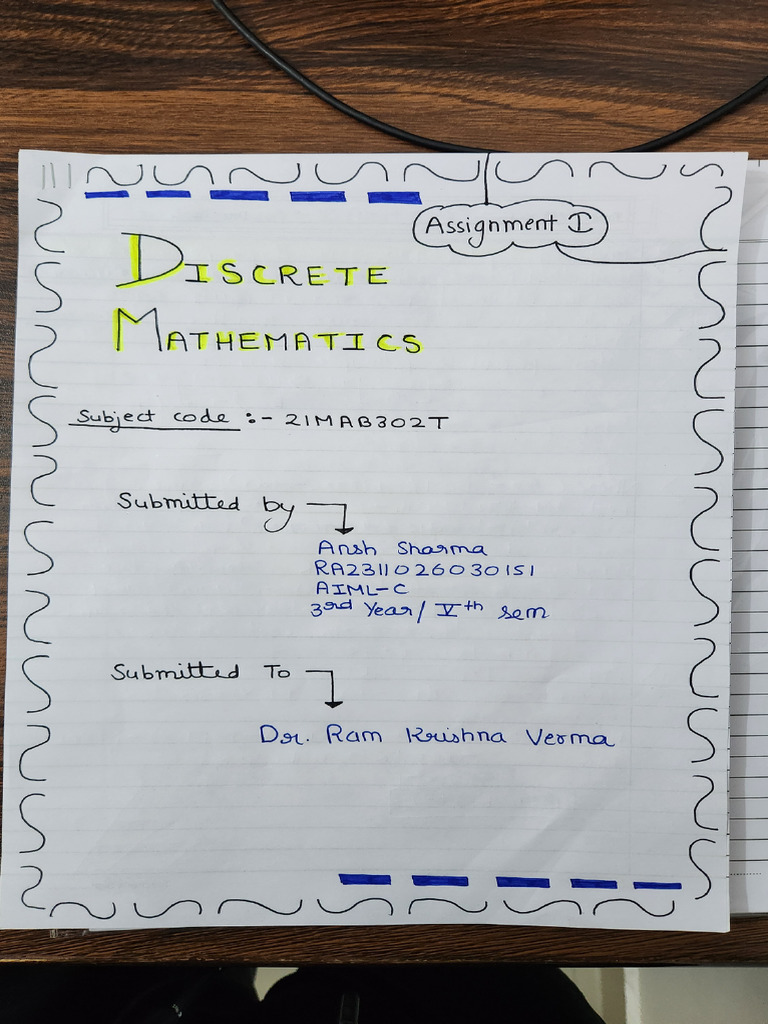 Assignment I
DISCRETE
MATHEMATICS
Subject code :- 21MAB302T
Submitted by
Ansh Sharma
RA2311026030151
AIML-C
3rd Year / Vth sem
Submitted To
Dr. Ram Krishna Verma